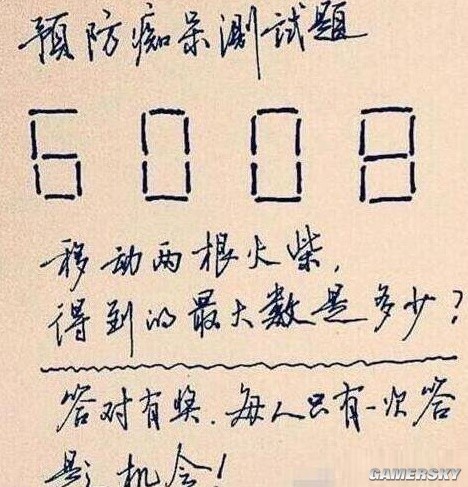 预防痴呆测试题
6008
移动两根火柴,
得到的最大数是多少?
答对有奖.每人只有一次答
题机会!
GAMERSKY